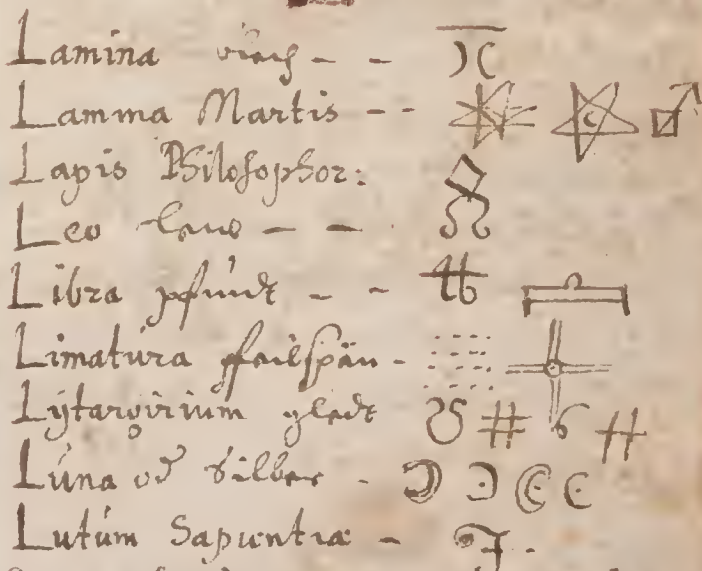 Lamina blech - -
Lamina Martis - -
Lapis Philosophor:
Leo Leuw - -
Libra pfundt - - ℔
Limatura ffeilspän -
Lÿtargirium gledt
Luna od Silber -
Lutum Sapientiæ -